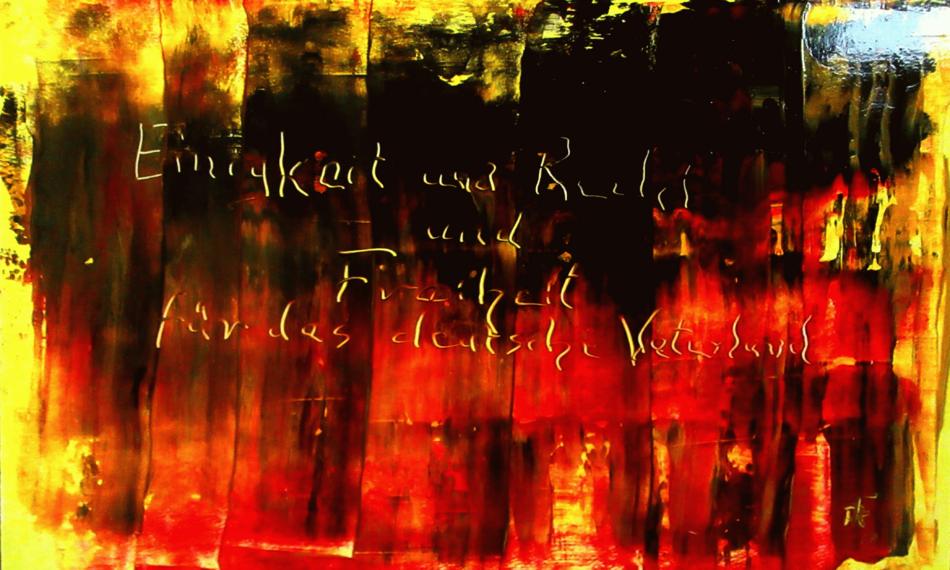 Einigkeit und Recht
und
Freiheit
für das deutsche Vaterland